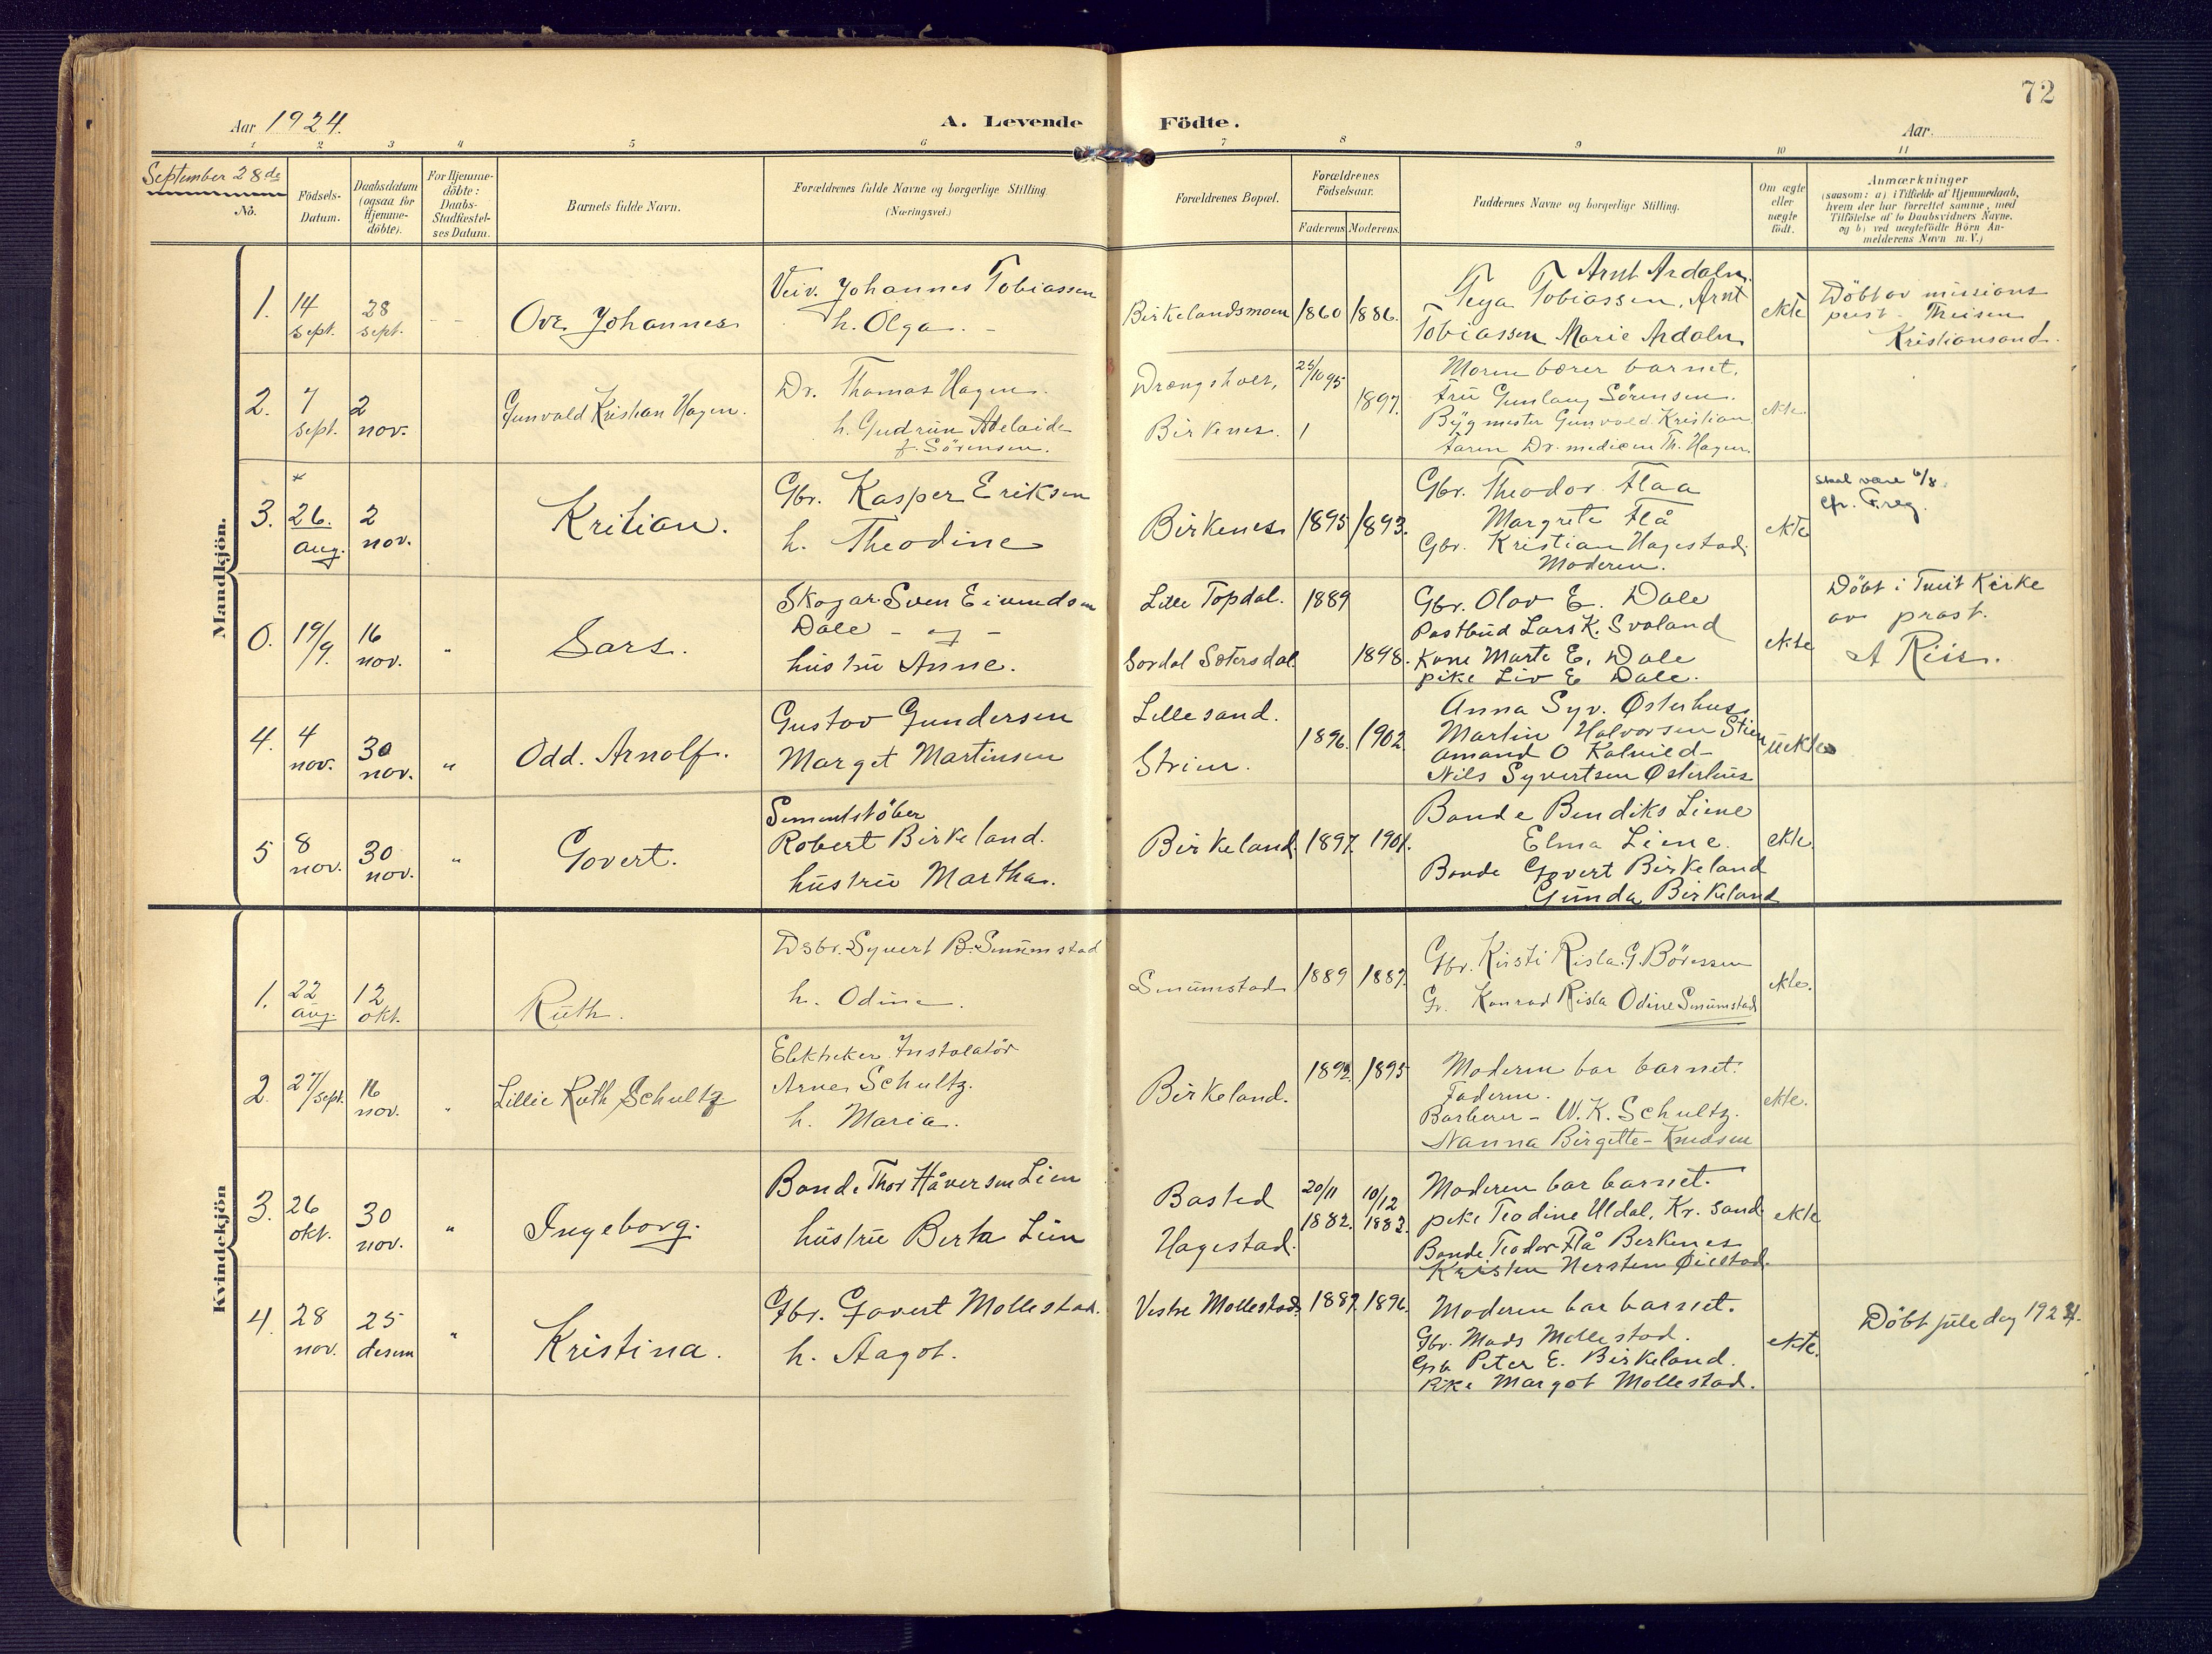 72
Aar 1924.
A. Levende Födte.
Aar.
1 2 3 4 5 6 7 8 9 10 11
September 28de
No.
Födsels-
Datum.
Daabsdatum
(ogsaa for
Hjemme-
döbte).
For Hjemme-
döbte:
Daabs-
Stadfæstel-
ses Datum.
Barnets fulde Navn.
Forældrenes fulde Navne og borgerlige Stilling.
(Næringsvei.)
Forældrenes Bopæl.
Forældrenes
Födselsaar.
Faderens Moderens.
Faddernes Navne og borgerlige Stilling.
Om ægte
eller
uægte
födt.
Anmærkninger
(saasom: a) i Tilfælde af Hjemmedaab,
hvem der har forrettet samme, med
Tilföielse af to Daabsvidners Navne.
og b) ved uægtefödte Börn An-
melderens Navn m. V.)
Mandkjön.
1.
14
sept.
28
sept.
Ove Johannes
Veiv. Johannes Tobiassen
h. Olga. -
Birkelandsmoen
1860
1886.
Arnt Ardaln.
Teya Tobiassen, Arnt
Tobiassen Marie Ardaln
ekte
Döbt av missions
prest - Theisen
Kristiansand.
2.
7
sept.
2
nov.
Gunvald Kristian Hagen.
Dr. Thomas Hagen.
h. Gudrun Adelaide
f. Sörensen.
Drængsholt,
Birkenes.
25/10 95
1897.
Moren bærer barnet.
Fru Gunlaug Sørensen.
Bygmester Gunvald Kristian
faren Dr. medicin Th. Hagen.
ekte.
3.
*
26.
aug.
2
nov.
Kritian.
Gbr. Kasper Eriksen
h. Theodine
Birkenes
1895
1893.
Gbr. Theodor Flaa
Margrete Flå
Gbr. Kristian Hagestad.
Moderen.
ekte
skal være 6/8
cfr. F.reg.
0.
19/9.
16
nov.
"
Lars.
Skogar. Sven Eivindsen
Dale - og -
hustru Anne.
Lille Topdal.
Sordal Sætersdal
1889
1898.
Gbr. Olav E. Dale
Postbud Lars K. Svaland
Kone Marte E. Dale
pike Liv E Dale.
ekte
Döbt i Tveit Kirke
av prost.
A Riis.
4.
4
nov.
30
nov.
"
Odd. Arnolf.
Gustav Gundersen
Marget Martinsen
Lillesand.
Strien.
1896.
1902
Anna Syv. Østerhus
Martin Halvorsen Stien
Amand O Kalvild
Nils Syvertsen Østerhus
uekte
5
8
nov.
30
nov.
"
Govert.
Sementstöber
Robert Birkeland.
hustru Martha.
Birkeland
1897.
1901.
Bonde Bendiks Liene
Elma Liene.
Bonde Govert Birkeland
Gunda Birkeland
ekte.
Kvindekjön
1.
22
aug.
12
okt.
Ruth.
Dsbr. Syvert B. Senumstad
h. Odine.
Senumstad
1889
1887.
Gbr. Kirsti Risla. G. Böressen
Gr. Konrad Risla Odine Senumstad
ekte.
2.
27/sept.
16
nov.
"
Lillie Ruth Schultz
Elektriker Instalatör
Arne Schultz.
h. Maria.
Birkeland.
1892.
1895
Moderen bar barnet.
Faderen.
Barberer - W.K. Schultz.
Nanna Birgitte - Knudsen
ekte.
3.
26
okt.
30
nov.
"
Ingeborg.
Bonde Thor Håversen Lien
hustru Berta Lien
Bastad
Hagestad.
20/11
1882.
10/12
1883.
Moderen bar barnet.
pike Teodine Uldal, Kr. sand
Bonde Teodor Flå Berkenes
Kristen Nersten Øiestad.
ekte
4.
28
nov.
25
desem
"
Kristina.
Gbr. Govert Mollestad.
h. Aagot.
Vestre Mollestad.
1887.
1896.
Moderen bar barnet.
Gbr. Mads Mollestad.
Gbr Peter E. Birkeland.
Pike Margot Mollestad.
ekte.
Döbt juledag 1924.